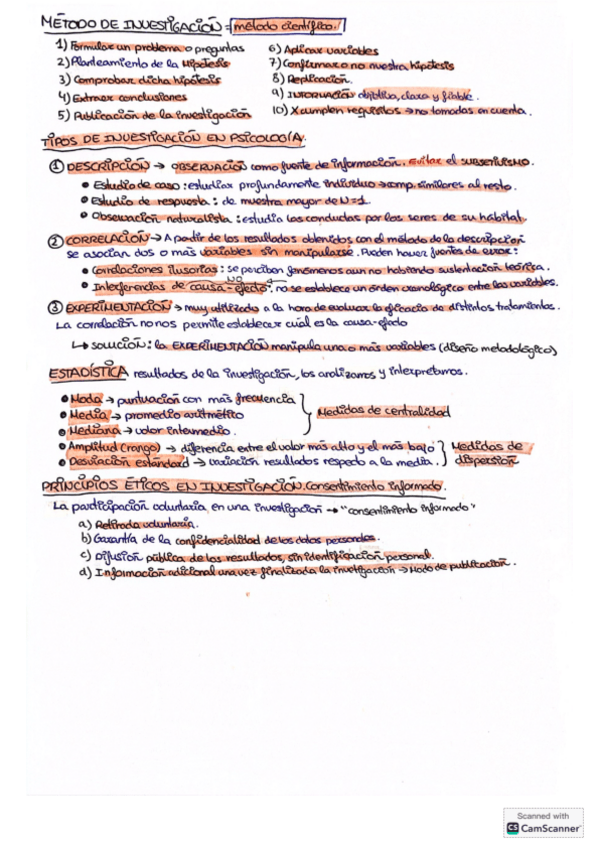 MÉTODO DE INVESTIGACIÓN = método científico.
1) Formular un problema o preguntas
2) Planteamiento de la Hipótesis
3) Comprobar dicha hipótesis
4) Extraer conclusiones
5) Publicación de la investigación
6) Aplicar variables
7) Confirmar o no nuestra hipótesis
8) Replicación.
9) INFORMACIÓN objetiva, clara y fiable.
10) X cumplen requisitos → no tomadas en cuenta.
TIPOS DE INVESTIGACIÓN EN PSICOLOGÍA.
① DESCRIPCIÓN → OBSERVACIÓN como fuente de información. Evitar el subjetivismo.
• Estudio de caso: estudiar profundamente individuo → comp. similares al resto.
• Estudio de respuesta: de muestra mayor de N=1.
• Observación naturalista: estudia las conductas por los seres de su hábitat.
② CORRELACIÓN → A partir de los resultados obtenidos con el método de la descripción
se asocian dos o más variables sin manipularse. Pueden haver fuentes de error:
• Correlaciones ilusorias: se perciben fenómenos aun no habiendo sustentación teórica.
• Interferencias de causa-efecto: no se establece un órden cronológico entre las variables.
NO
③ EXPERIMENTACIÓN → muy utilizado a la hora de evaluar la eficacia de distintos tratamientos.
La correlación no nos permite establecer cuál es la causa-efecto
↳ SOLUCIÓN: la EXPERIMENTACIÓN manipula una o más variables (diseño metodológico)
ESTADÍSTICA resultados de la investigación, los analizamos y interpretamos.
• Moda → puntuación con más frecuencia
• Media → promedio aritmético
• Mediana → valor intermedio.
Medidas de centralidad
• Amplitud (rango) → diferencia entre el valor más alto y el más bajo
• Desviación estándard → variación resultados respecto a la media.
Medidas de
dispersión
PRINCIPIOS ÉTICOS EN INVESTIGACIÓN. Consentimiento informado.
La participación voluntaria en una investigación → "consentimiento informado"
a) Retirada voluntaria.
b) Garantía de la confidencialidad de los datos personales.
c) Difusión pública de los resultados, sin identificación personal.
d) Información adicional una vez finalizada la investigación → Modo de publicación.
Scanned with
CS CamScanner